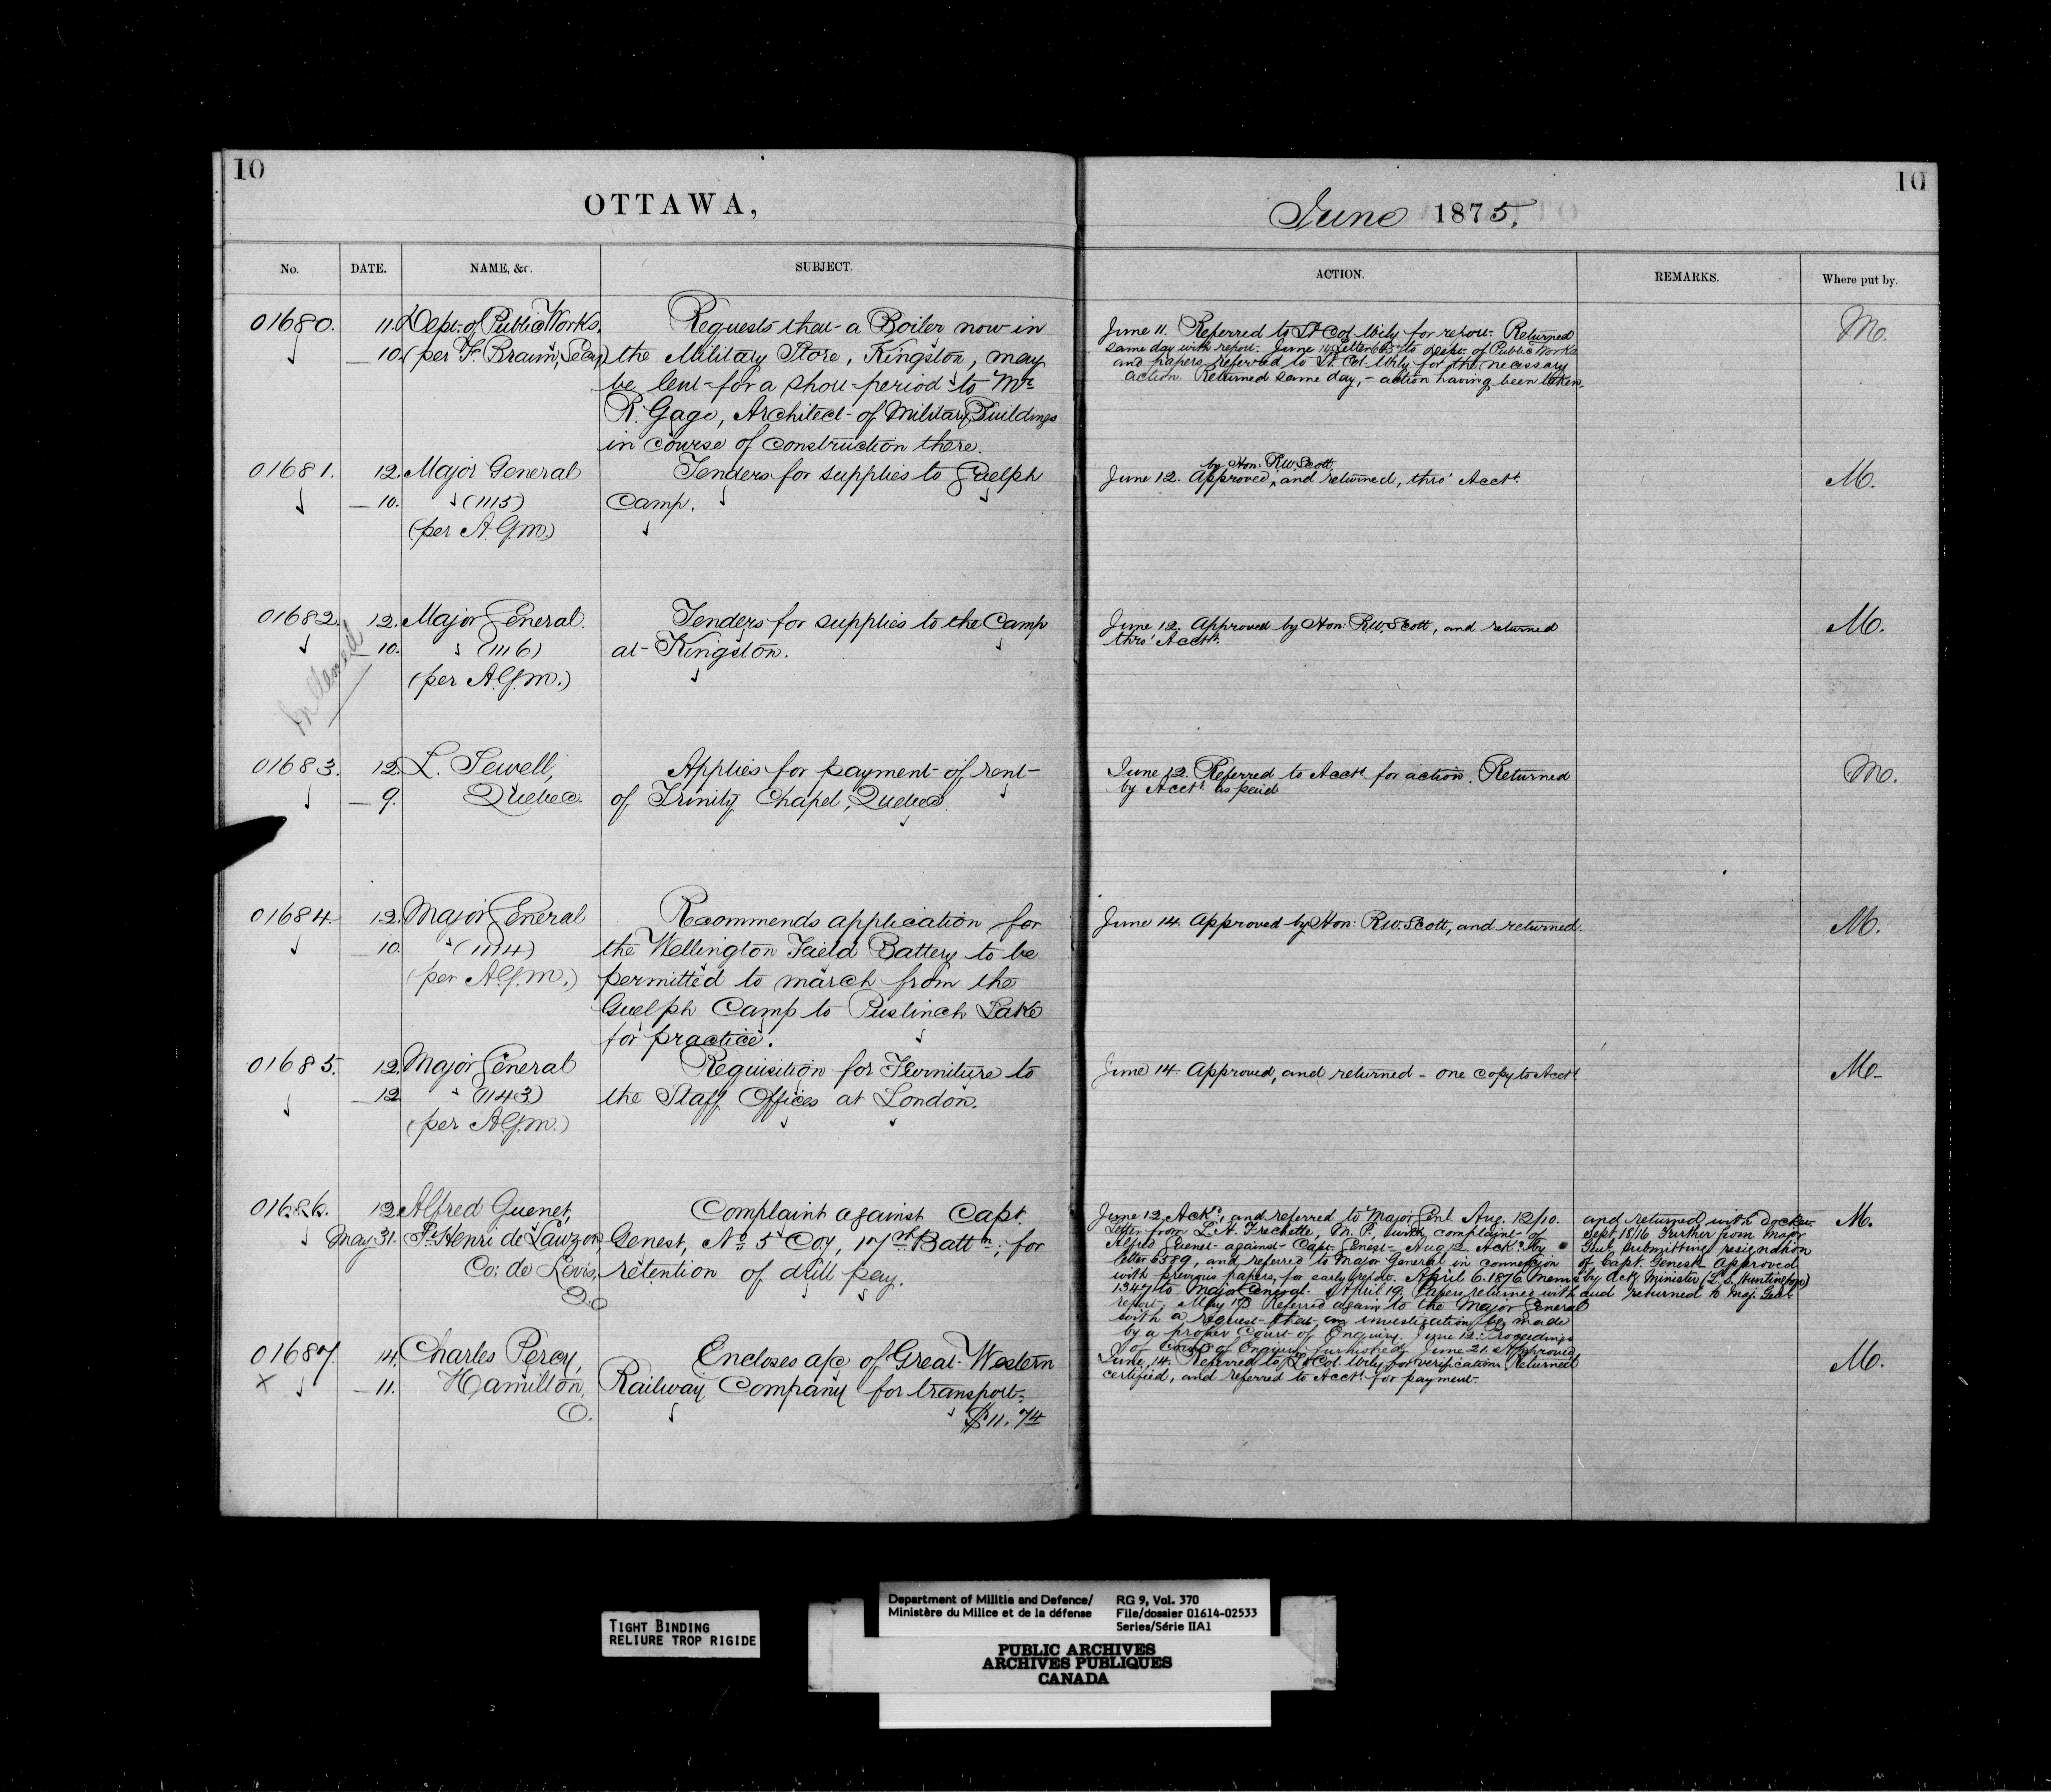 10
OTTAWA,
No. DATE. NAME, &c. SUBJECT.
01680. 11. Dept. of Public Works, Requests that a Boiler now in
10. (per F. Braun, Secy) the Military Store, Kingston, may
be lent for a short period to Mr
R. Gage, Architect of Military Buildings
in course of construction there.
01681. 12. Major General Tenders for supplies to Guelph
10. (1115) Camp.
(per A.G.M.)
01682. 12. Major General Tenders for supplies to the Camp
10. (1116) at Kingston.
(per A.G.M.)
01683. 12. L. Sewell, Applies for payment of rent
9. Quebec. of Trinity Chapel, Quebec.
01684. 12. Major General Recommends application for
10. (1114) the Wellington Field Battery to be
(per A.G.M.) permitted to march from the
Guelph Camp to Puslinch Lake
for practice.
01685. 12. Major General Requisition for Furniture to
12 (1143) the Staff Offices at London.
(per A.G.M.)
01686. 12. Alfred Guenet, Complaint against Capt.
May 31. St. Henri de Lauzon, Genest, No 5 Coy, 17th Battn, for
Co: de Levis, retention of drill pay.
Q.
01687. 14. Charles Percy, Encloses a/c of Great Western
X 11. Hamilton, Railway Company for transport.
O. $11.74
10
June 1875.
ACTION. REMARKS. Where put by.
June 11. Referred to Lt Col Wily for report. Returned M.
same day with report. June Letter to Dept. of Public Works
and papers referred to Lt. Col. Wily for the necessary
action. Returned same day, - action having been taken.
by Hon: R.W. Scott
June 12. Approved, and returned, thro' Acctt. M.
June 12. Approved by Hon: R.W. Scott, and returned M.
thro' Acctt.
June 12. Referred to Acctt for action. Returned M.
by Acctt. as paid
June 14. Approved by Hon: R.W. Scott, and returned. M.
June 14. Approved, and returned - one copy to Acctt M.
June 12 Ackd, and referred to Major Genl. Aug. 12/10. and returned with docket M.
Letter from L. H. Frechette, M.P., with complaint of Sept 18/76 Further from Major
Alfred Guenet against Capt. Genest. Aug 12 Ackd by Genl. submitting resignation
letter 6589, and referred to Major General in connexion of Capt. Genest. Approved
with previous papers, for early report. April 6. 1876 Memo by actg. Minister (L. S. Huntington)
1347 to Major General. April 19. Papers returned with and returned to Maj. Genl.
report. May 17 Referred again to the Major General
with a request that an investigation be made
by a proper Court of Enquiry. June 12. Proceedings
of Court of Enquiry furnished. June 21. Approved
June 14. Referred to Lt Col. Wily for verification. Returned M.
certified, and referred to Acctt. for payment.
TIGHT BINDING
RELIURE TROP RIGIDE
Department of Militia and Defence/ RG 9, Vol. 370
Ministère du Milice et de la défense File/dossier 01614-02533
Series/Série IIA1
PUBLIC ARCHIVES
ARCHIVES PUBLIQUES
CANADA